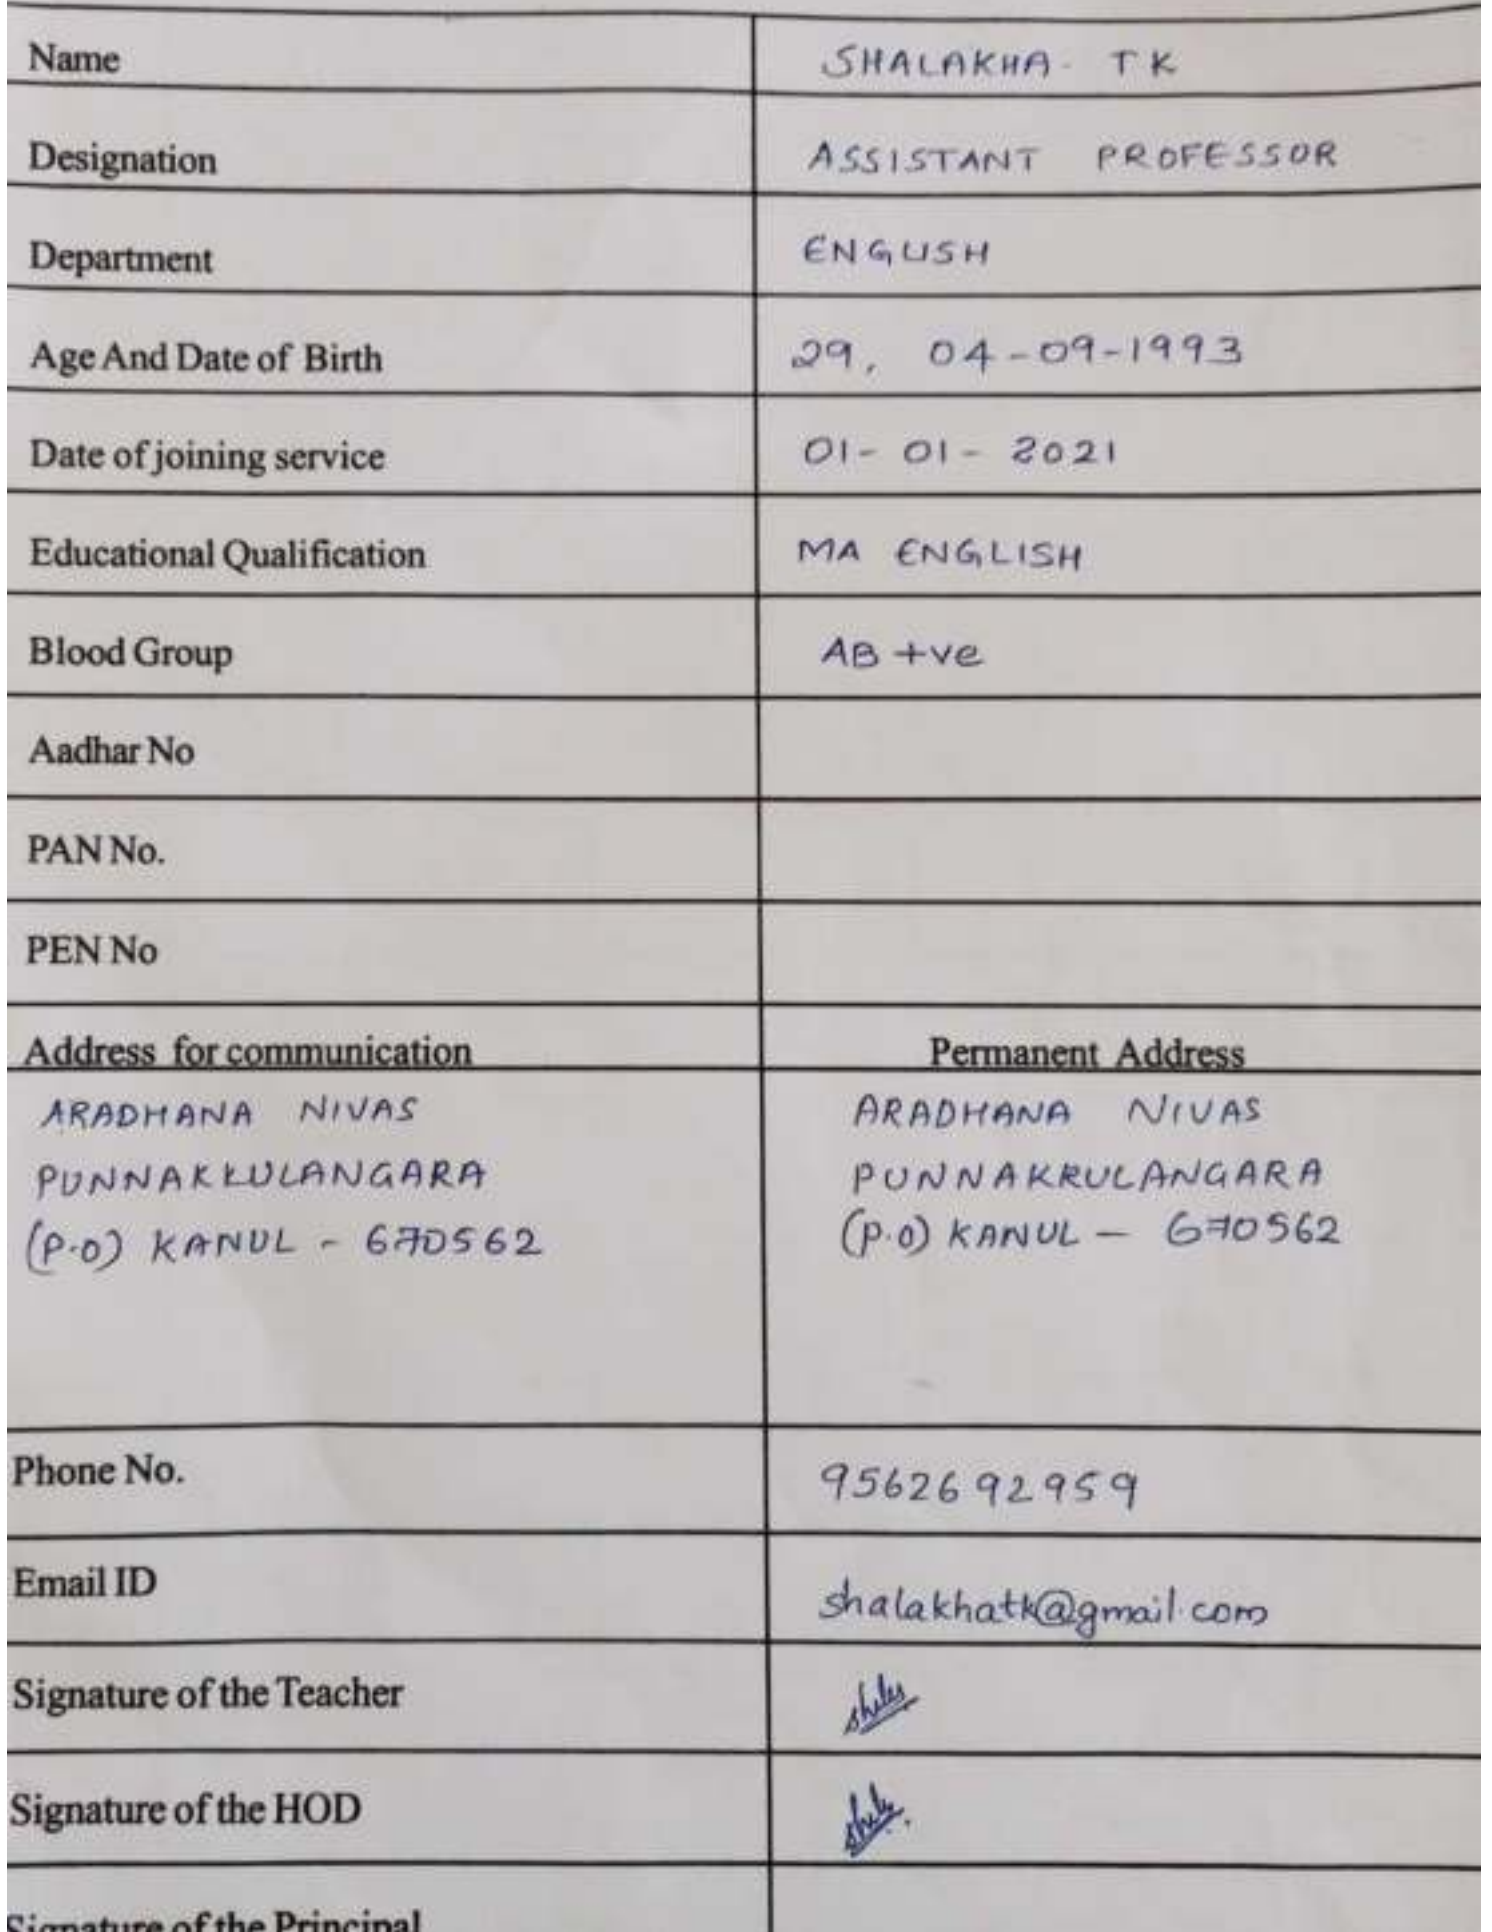 Name SHALAKHA TK
Designation ASSISTANT PROFESSOR
Department ENGLISH
Age And Date of Birth 29, 04-09-1993
Date of joining service 01-01-2021
Educational Qualification MA ENGLISH
Blood Group AB +ve
Aadhar No
PAN No.
PEN No
Address for communication Permanent Address
ARADHANA NIVAS ARADHANA NIVAS
PUNNAKKULANGARA PUNNAKKULANGARA
(P.O) KANUL - 670562 (P.O) KANUL - 670562
Phone No. 9562692959
Email ID shalakhatk@gmail.com
Signature of the Teacher
Signature of the HOD
Signature of the Principal